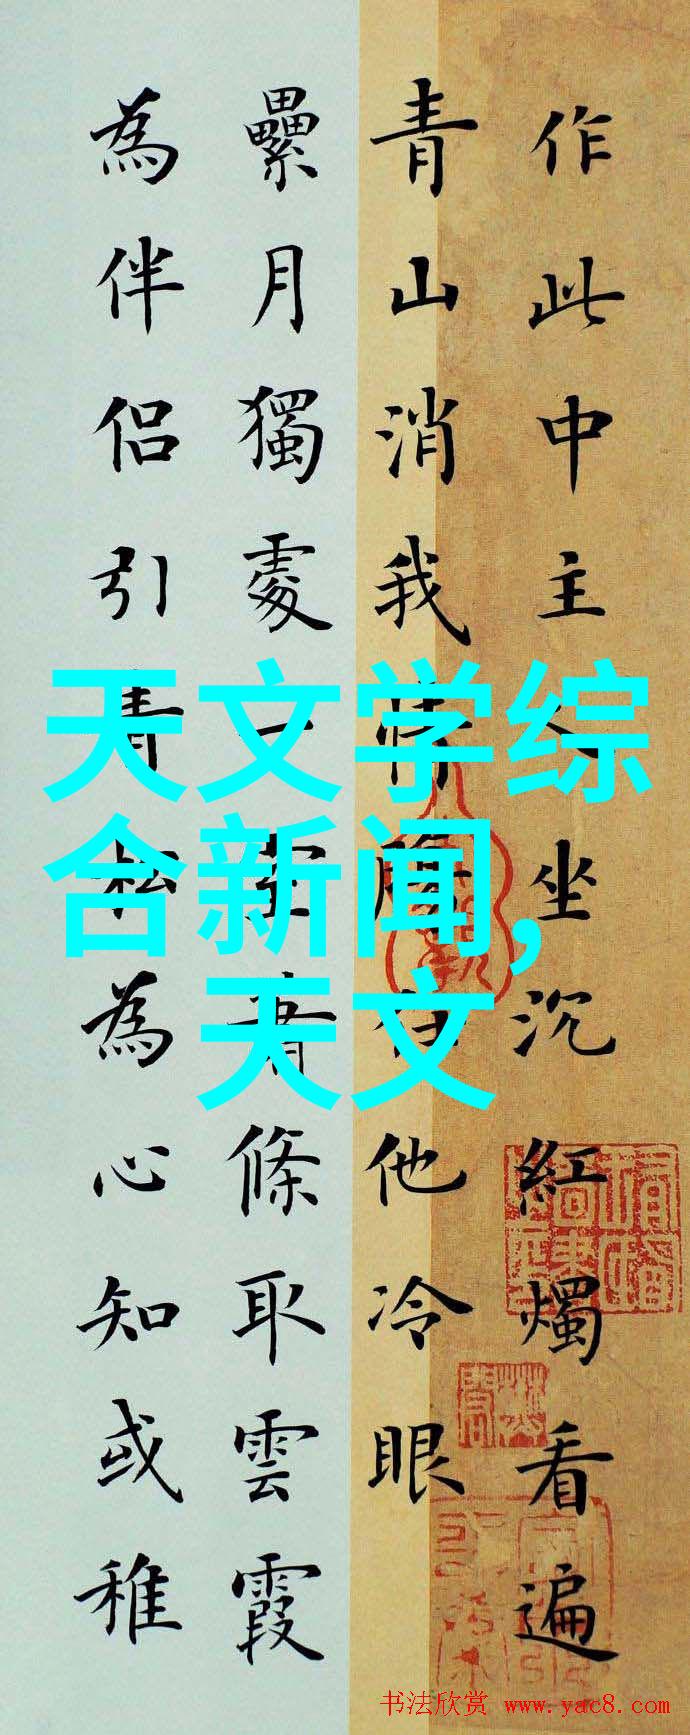 作此中主人坐沉紅燭看遍
青山消我情腸任他冷眼
纍月獨處一室蕭條取雲霞
為伴侶引青松為心知或稚
天文学综
合新闻,
天文
书法欣赏 www.yac8.com